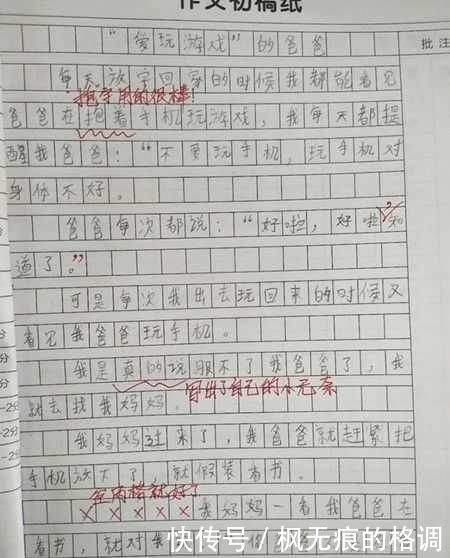 作文初稿纸
批注
“爱玩游戏”的爸爸
每天放学回家的时候我都能看见
抱字用的很棒!
爸爸在抱着手机玩游戏,我每天都提
醒我爸爸:“不要玩手机,玩手机对
身体不好。
爸爸每次都说:“好啦,好啦,知
道了。”
可是每次我出去玩回来的时候又
看见我爸爸玩手机。
我是真的说服不了我爸爸了,我
写出了自己的小无奈
就去找我妈妈。
我妈妈过来了,我爸爸就赶紧把
手机放下了,就假装看书。
空两格就好了
×××××我妈妈一看我爸爸在
看书,就对我
快传号/枫无痕的格调